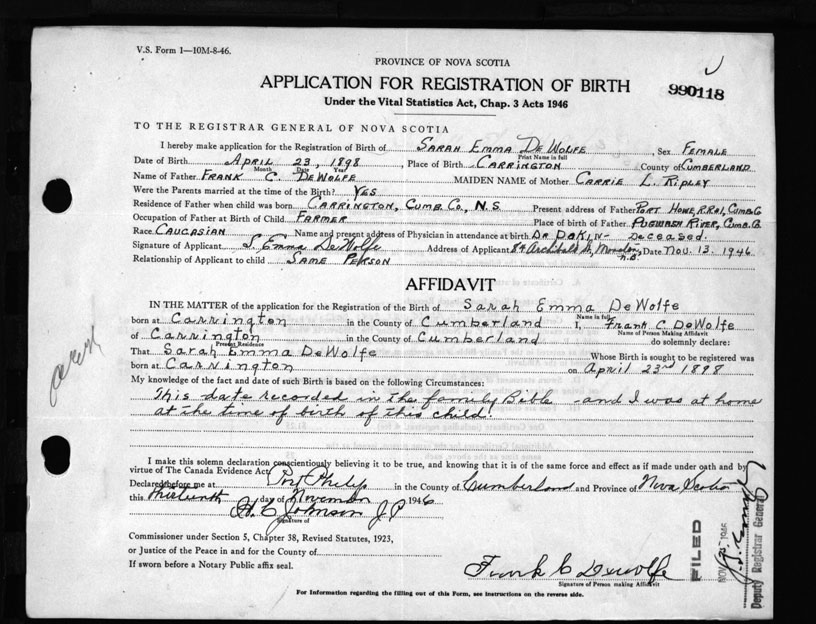 V.S. Form 1—10M-8-46.
PROVINCE OF NOVA SCOTIA
APPLICATION FOR REGISTRATION OF BIRTH
990118
Under the Vital Statistics Act, Chap. 3 Acts 1946
TO THE REGISTRAR GENERAL OF NOVA SCOTIA
I hereby make application for the Registration of Birth of SARAH EMMA DEWOLFE, Sex FEMALE
Print Name in full
Date of Birth APRIL 23, 1898, Place of Birth CARRINGTON County of CUMBERLAND
Month Date Year
Name of Father FRANK C DEWOLFE MAIDEN NAME of Mother CARRIE L. RIPLEY
Were the Parents married at the time of Birth? YES
Residence of Father when child was born CARRINGTON, CUMB. CO., N.S. Present address of Father PORT HOWE, R.R.#1, CUMB. CO
Occupation of Father at Birth of Child FARMER Place of birth of Father PUGWASH RIVER, CUMB. CO.
Race CAUCASIAN Name and present address of Physician in attendance at birth DR DAKIN - DECEASED.
Signature of Applicant S. Emma DeWolfe Address of Applicant 84 Archibald St, Moncton, N.B. Date Nov. 13. 1946
Relationship of Applicant to child SAME PERSON
AFFIDAVIT
IN THE MATTER of the application for the Registration of the Birth of Sarah Emma DeWolfe
Name in full
born at Carrington in the County of Cumberland I, Frank C DeWolfe
Name of Person Making Affidavit
of Carrington in the County of Cumberland do solemnly declare:
Present Residence
That Sarah Emma DeWolfe Whose Birth is sought to be registered was
born at Carrington on April 23rd 1898
My knowledge of the fact and date of such Birth is based on the following Circumstances:
This date recorded in the family Bible - and I was at home
at the time of birth of this child.
I make this solemn declaration conscientiously believing it to be true, and knowing that it is of the same force and effect as if made under oath and by
virtue of The Canada Evidence Act.
Declared before me at Port Philip in the County of Cumberland and Province of Nova Scotia
this thirteenth day of November 1946
H. C. Johnson J P
Signature of
Commissioner under Section 5, Chapter 38, Revised Statutes, 1923,
or Justice of the Peace in and for the County of
If sworn before a Notary Public affix seal.
Frank C Dewolfe
Signature of Person making Affidavit
For Information regarding the filling out of this Form, see instructions on the reverse side.
FILED
NOV 1946
Deputy Registrar General